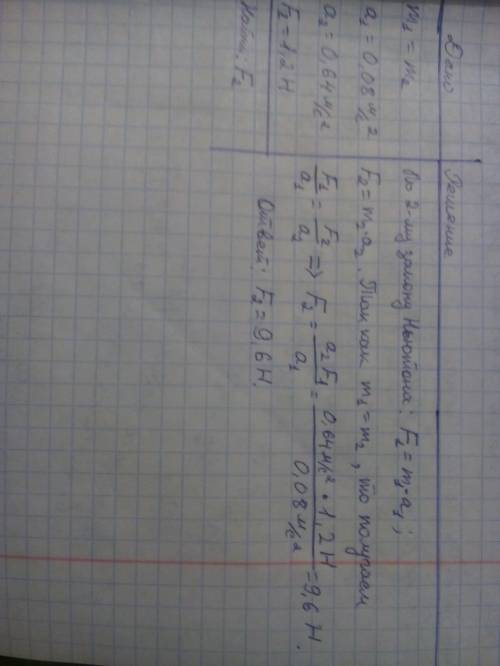 Дано
m₁ = m₂
a₁ = 0,08 м/с²
a₂ = 0,64 м/с²
F₂ = 1,2 Н
Найти: F₂
Решение
По 2-му закону Ньютона: F₁ = m₁·a₁;
F₂ = m₂·a₂. Так как m₁ = m₂, то получаем
F₁/a₁ = F₂/a₂ => F₂ = a₂F₁/a₁ = 0,64 м/с² · 1,2 Н / 0,08 м/с² = 9,6 Н.
Ответ: F₂ = 9,6 Н.